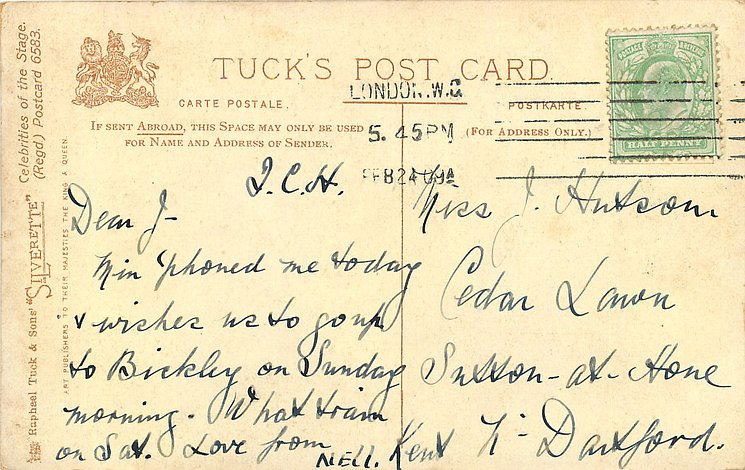 Celebrities of the Stage.
(Regd) Postcard 6583.
Raphael Tuck & Sons' "SILVERETTE"
ART PUBLISHERS TO THEIR MAJESTIES THE KING & QUEEN
TUCK'S POST CARD.
CARTE POSTALE.
POSTKARTE
IF SENT ABROAD, THIS SPACE MAY ONLY BE USED
FOR NAME AND ADDRESS OF SENDER.
(FOR ADDRESS ONLY.)
LONDON. W.C
5.45PM
FEB 24 09A
POSTAGE REVENUE
HALF PENNY
Dear J-
Min 'phoned me today
& wishes us to go up
to Bickley on Sunday
morning. What train
on Sat. Love from
NELL.
Miss J. Hutson
Cedar Lawn
Sutton-at-Hone
Kent Nr Dartford.